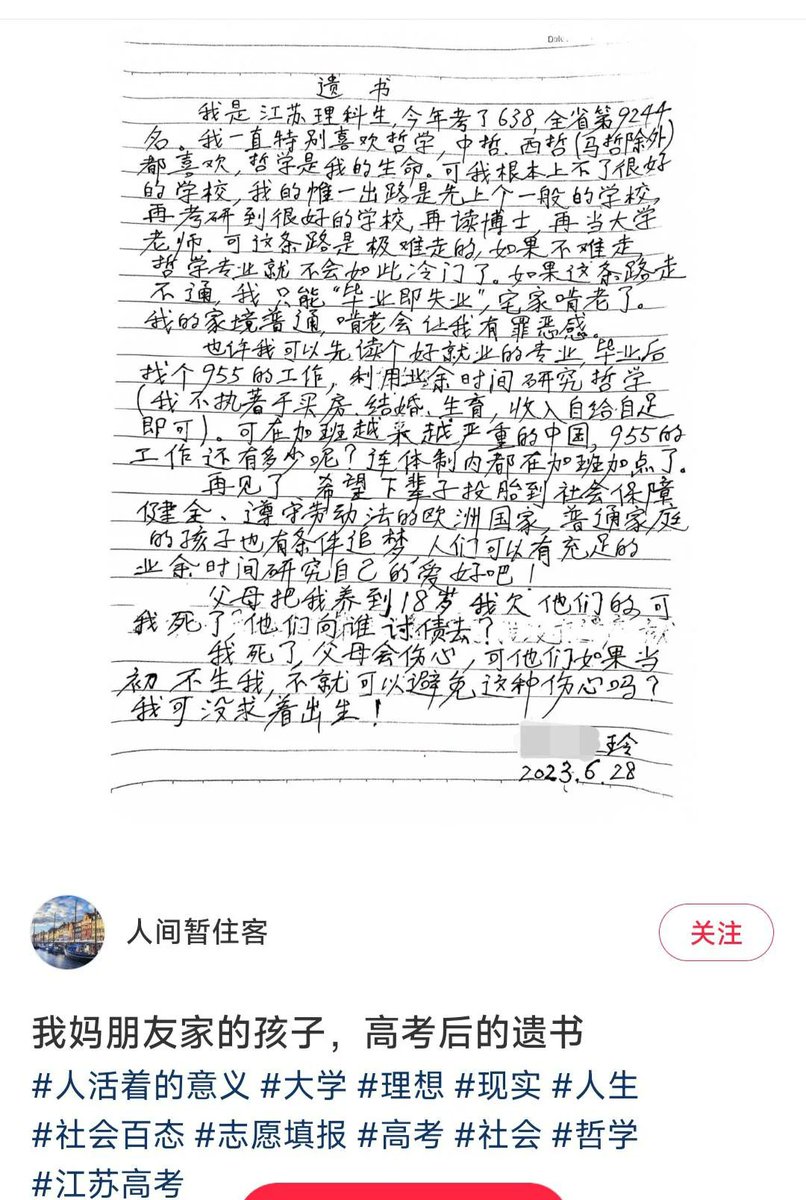 Date.
遗 书
我是江苏理科生,今年考了638,全省第9244
名。我一直特别喜欢哲学,中哲、西哲(马哲除外)
都喜欢,哲学是我的生命。可我根本上不了很好
的学校,我的惟一出路是先上个一般的学校,
再考研到很好的学校,再读博士,再当大学
老师.可这条路是极难走的,如果不难走,
哲学专业就不会如此冷门了。如果这条路走
不通,我只能“毕业即失业”,宅家啃老了。
我的家境普通,啃老会让我有罪恶感。
也许我可以先读个好就业的专业,毕业后
找个955的工作,利用业余时间研究哲学
(我不执著于买房、结婚、生育,收入自给自足
即可)。可在加班越来越严重的中国,955的
工作还有多少呢?连体制内都在加班加点了。
再见了 希望下辈子投胎到社会保障
健全、遵守劳动法的欧洲国家,普通家庭
的孩子也有条件追梦,人们可以有充足的
业余时间研究自己的爱好吧!
父母把我养到18岁 我欠他们的,可
我死了,他们向谁讨债去?
我死了,父母会伤心,可他们如果当
初不生我,不就可以避免这种伤心吗?
我可没求着出生!
玲
2023.6.28
人间暂住客
关注
我妈朋友家的孩子，高考后的遗书
#人活着的意义 #大学 #理想 #现实 #人生
#社会百态 #志愿填报 #高考 #社会 #哲学
#江苏高考